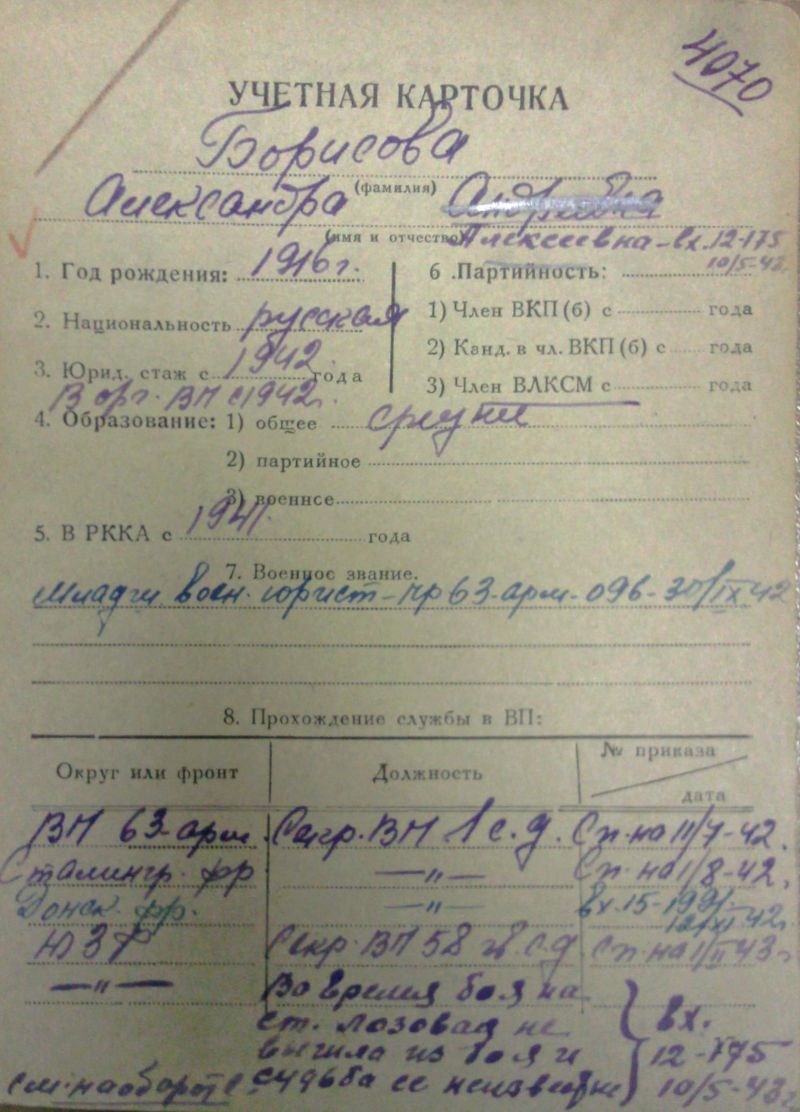 4070
УЧЕТНАЯ КАРТОЧКА
Борисова
(фамилия)
Александра
(имя и отчество) Алексеевна - вх. 12-175
10/5-43г.
1. Год рождения: 1916 г.
2. Национальность русская
3. Юрид. стаж с 1942 года
В орг. ВП с 1942г.
4. Образование: 1) общее средне
2) партийное
3) военнсе
5. В РККА с 1941. года
6. Партийность:
1) Член ВКП (б) с года
2) Канд. в чл. ВКП (б) с года
3) Член ВЛКСМ с года
7. Военное звание.
Младш. воен. юрист - пр 63-арм - 096 - 30/IX 42
8. Прохождение службы в ВП:
Округ или фронт Должность № приказа дата
ВП 63-арм. Секр. ВП 1 с. д. Сп. на 11/7-42.
Сталингр. фр —"— Сп. на 1/8-42.
Донск. фр. —"— вх. 15-1991-
12/XI 42г
ЮЗФ Секр. ВП 58 гв. с д Сп. на 1/II 43 г
—"— Во время боя на
ст. Лозовая не вх.
вышла из боя и 12-175
см. на обороте судьба ее неизвестна 10/5-43г